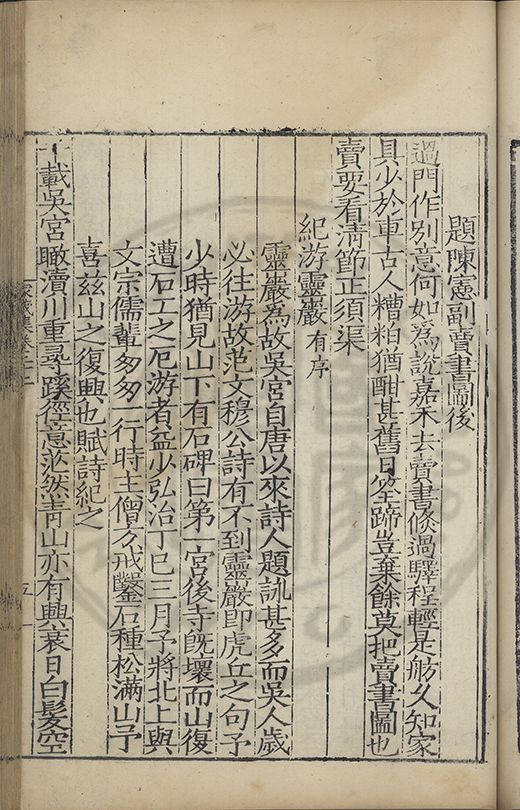 題陳憲副賣書圖後
過門作別意何如為說嘉禾去賣書倏過驛程輕是舫久知家
具少於車古人糟粕猶酣甚舊日筌蹄豈棄餘莫把賣書圖也
賣要看清節正須渠
紀游靈巖有序
靈巖為故吳宮自唐以來詩人題詠甚多而吳人歲
必往游故范文穆公詩有不到靈巖即虎丘之句予
少時猶見山下有石碑曰第一宮後寺既壞而山復
遭石工之厄游者益少弘治丁巳三月予將北上與
文宗儒輩匆匆一行時主僧方戒鑿石種松滿山予
喜茲山之復興也賦詩紀之
十載吳宮瞰瀆川重尋蹊徑意茫然青山亦有興衰日白髮空
家藏集卷二十
五